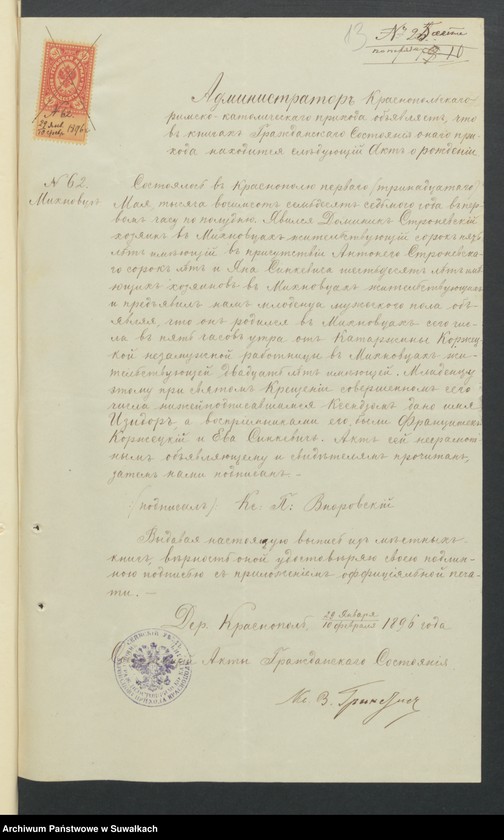 83
Администраторъ Краснопольскаго
римско-католическаго прихода объявляетъ, что
въ книгахъ Гражданскаго Состоянія онаго при-
хода находится слѣдующій Актъ о рожденіи
N 62.
Михновцы
Состоялсь въ Краснополю перваго /тринадцатаго/
Мая тысяча восимсотъ семьдесятъ седьмого года въ пер-
вомъ часу по полудню. Явился Доминикъ Строневскій
хозяинъ въ Михновцахъ жительствующій сорокъ пять
лѣтъ имѣющій въ присутствіи Антонего Строневска-
го сорокъ лѣтъ и Яна Синкевича шестьдесятъ лѣтъ имѣ-
ющихъ хозяиновъ въ Михновцахъ жительствующихъ
и предъявилъ намъ младенца мужескаго пола объ-
являя, что онъ родился въ Михновцахъ сего чис-
ла въ пять часовъ утра отъ Катаржины Корже-
цкой незамужной работницы въ Михновцахъ жи-
тельствующей двадцать лѣтъ имѣющей. Младенцу
этому при святомъ Крещеніи совершенномъ сего
числа нижеподписавшимся Ксендзомъ дано имя
Изидоръ а воспріемниками его были Францишекъ
Коржецкій и Ева Синкевичъ. Актъ сей неграмот-
нымъ объявляющему и свидѣтелямъ прочитанъ,
затемъ нами подписанъ. –
/подписалъ/ Кс. П. Вноровскій
Выдавая настоящую выпись изъ мѣстныхъ
книгъ, вѣрность оной удостовѣряю своею подлин-
ною подписью съ приложеніемъ оффиціяльной печа-
ти. –
Дер. Краснополь, 29 Января
10 февраля 1896 года
Акты Гражданскаго Состоянія
Archiwum Państwowe w Suwałkach